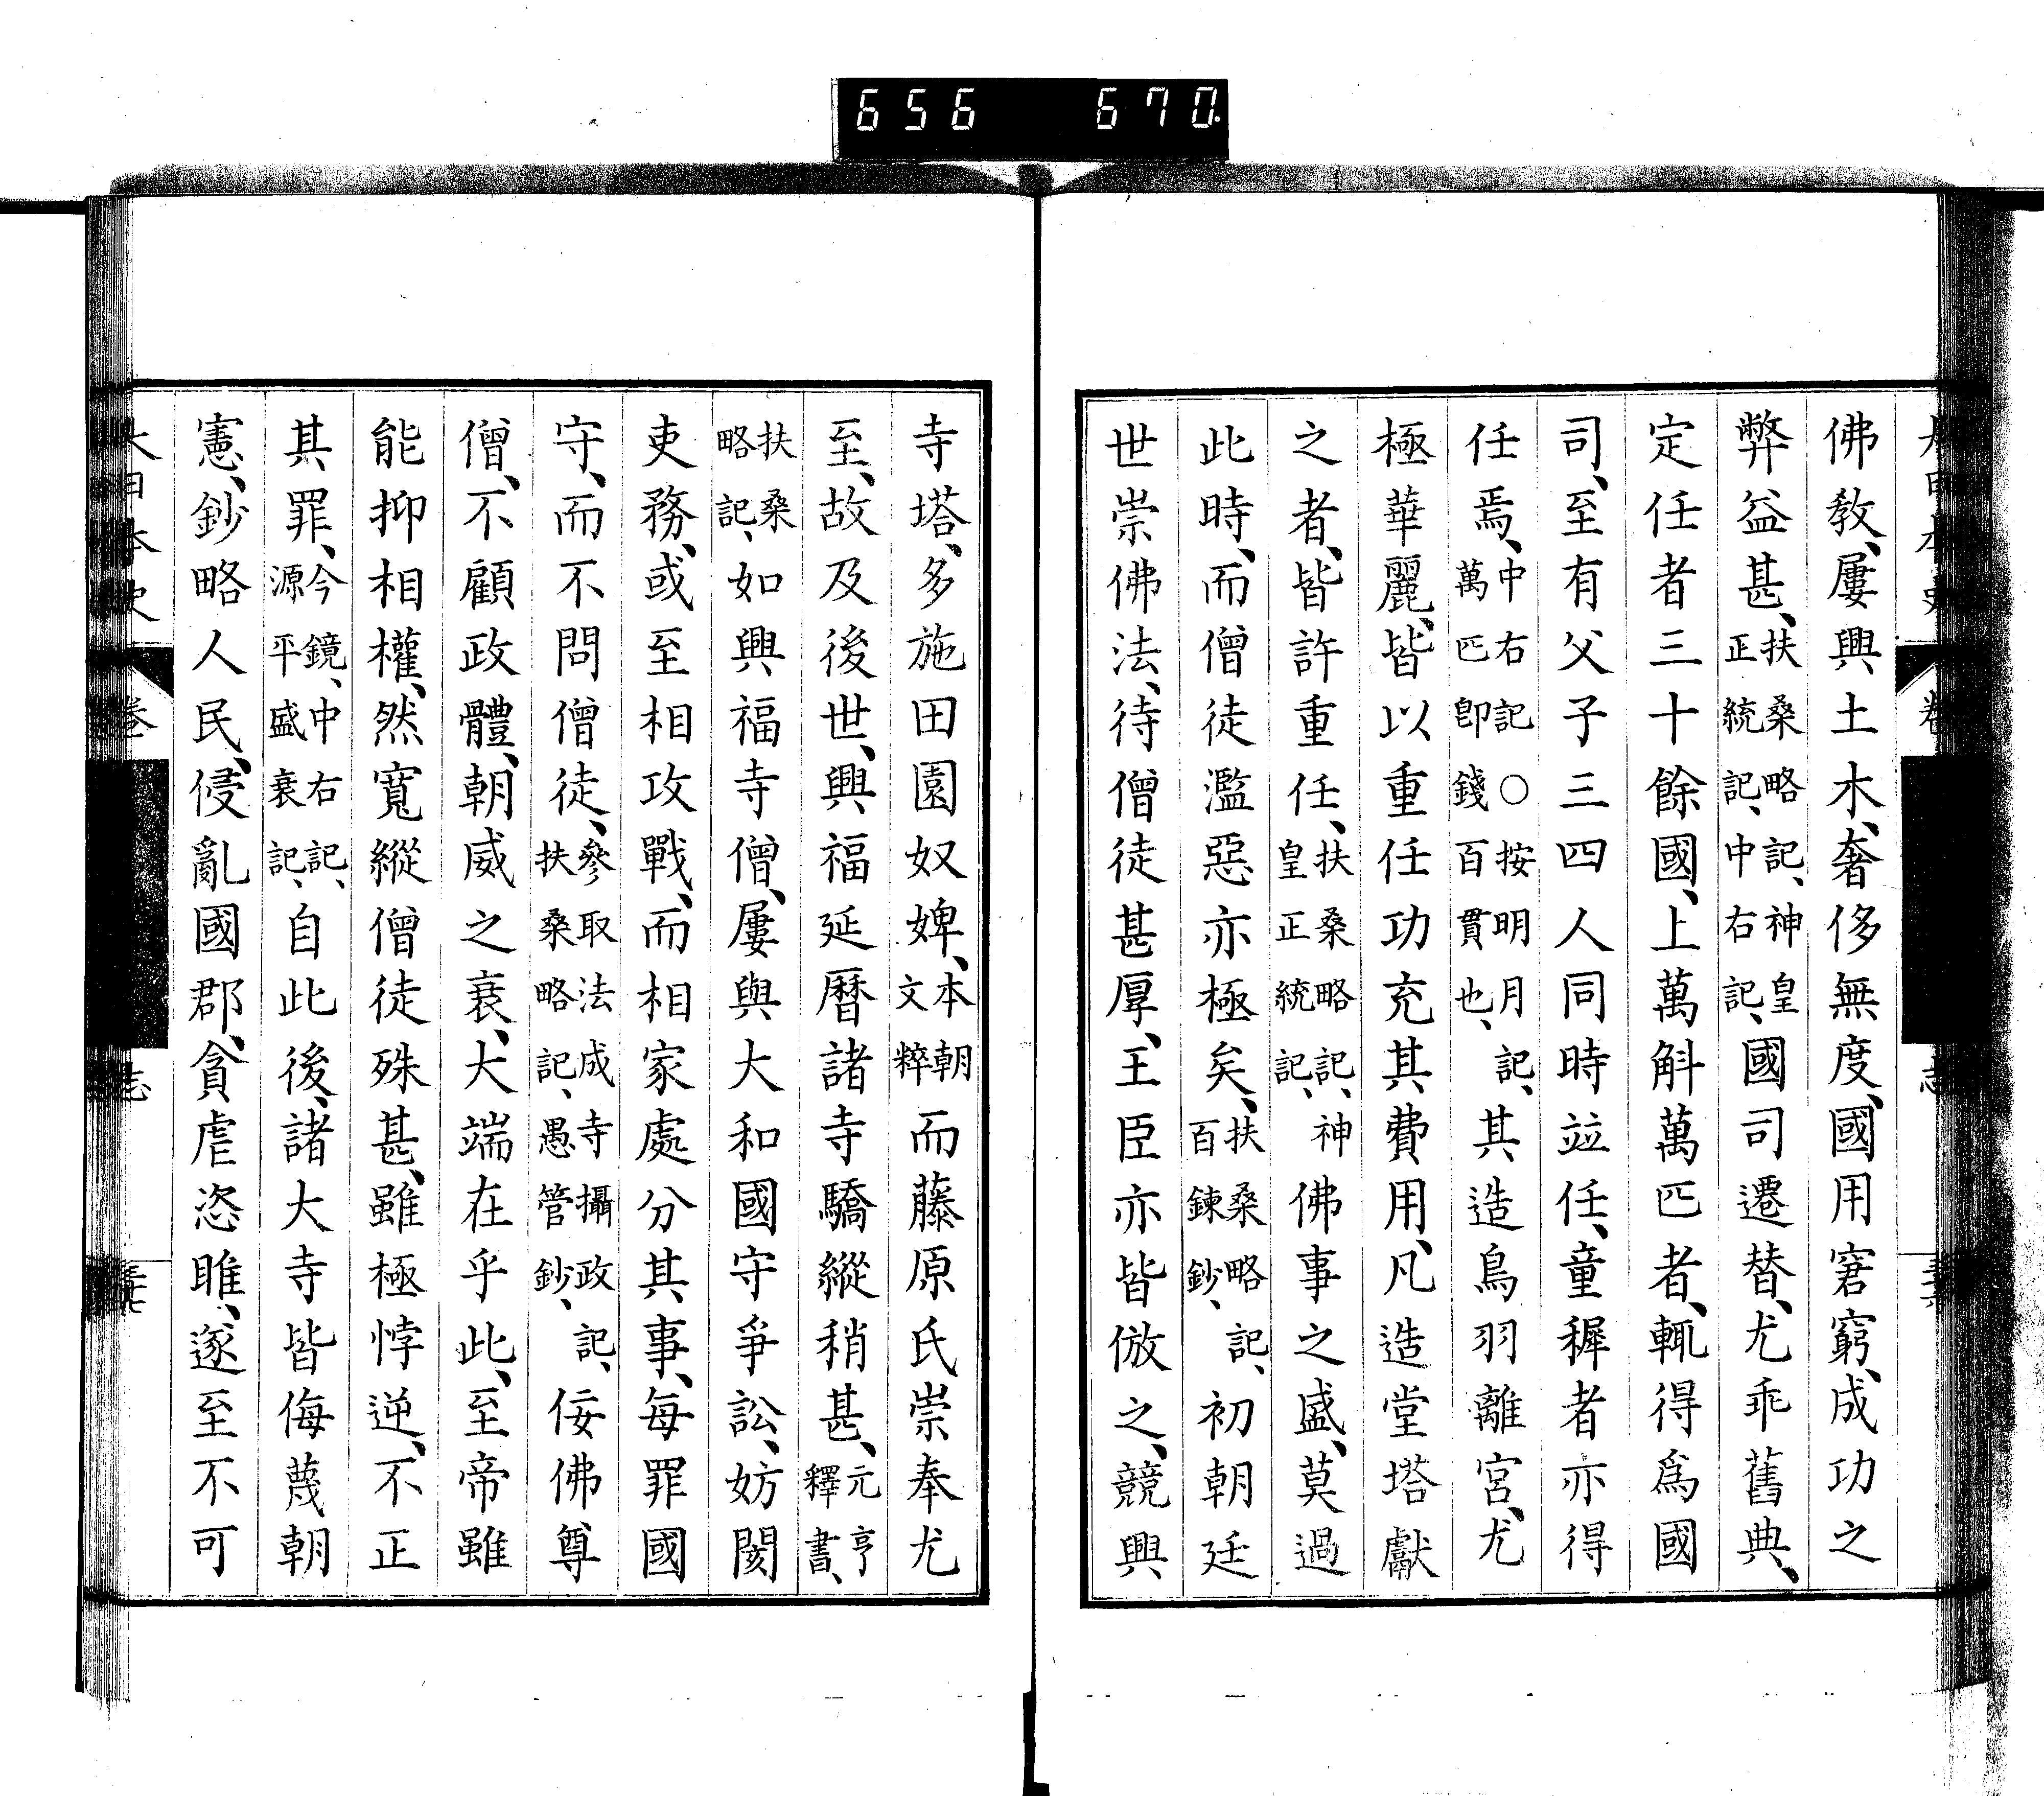 656 670.
佛敎、屢興土木、奢侈無度、國用窘窮、成功之
弊益甚、扶桑略記、神皇正統記、中右記、國司遷替、尤乖舊典、
定任者三十餘國、上萬斛萬匹者、輒得爲國
司、至有父子三四人同時竝任、童穉者亦得
任焉、中右記○按明月記、萬匹卽錢百貫也、其造鳥羽離宮、尤
極華麗、皆以重任功充其費用、凡造堂塔獻
之者、皆許重任、扶桑略記、神皇正統記、佛事之盛、莫過
此時、而僧徒濫惡亦極矣、扶桑略記、百鍊鈔、初朝廷
世崇佛法、待僧徒甚厚、王臣亦皆倣之、競興
寺塔、多施田園奴婢、本朝文粹而藤原氏崇奉尤
至、故及後世、興福延曆諸寺驕縱稍甚、元亨釋書、
扶桑略記、如興福寺僧、屢與大和國守爭訟、妨閡
吏務、或至相攻戰、而相家處分其事、每罪國
守、而不問僧徒、參取法成寺攝政記、扶桑略記、愚管鈔、佞佛尊
僧、不顧政體、朝威之衰、大端在乎此、至帝雖
能抑相權、然寬縱僧徒殊甚、雖極悖逆、不正
其罪、今鏡、中右記、源平盛衰記、自此後、諸大寺皆侮蔑朝
憲、鈔略人民、侵亂國郡、貪虐恣睢、遂至不可
大日本史 卷 志 三十七